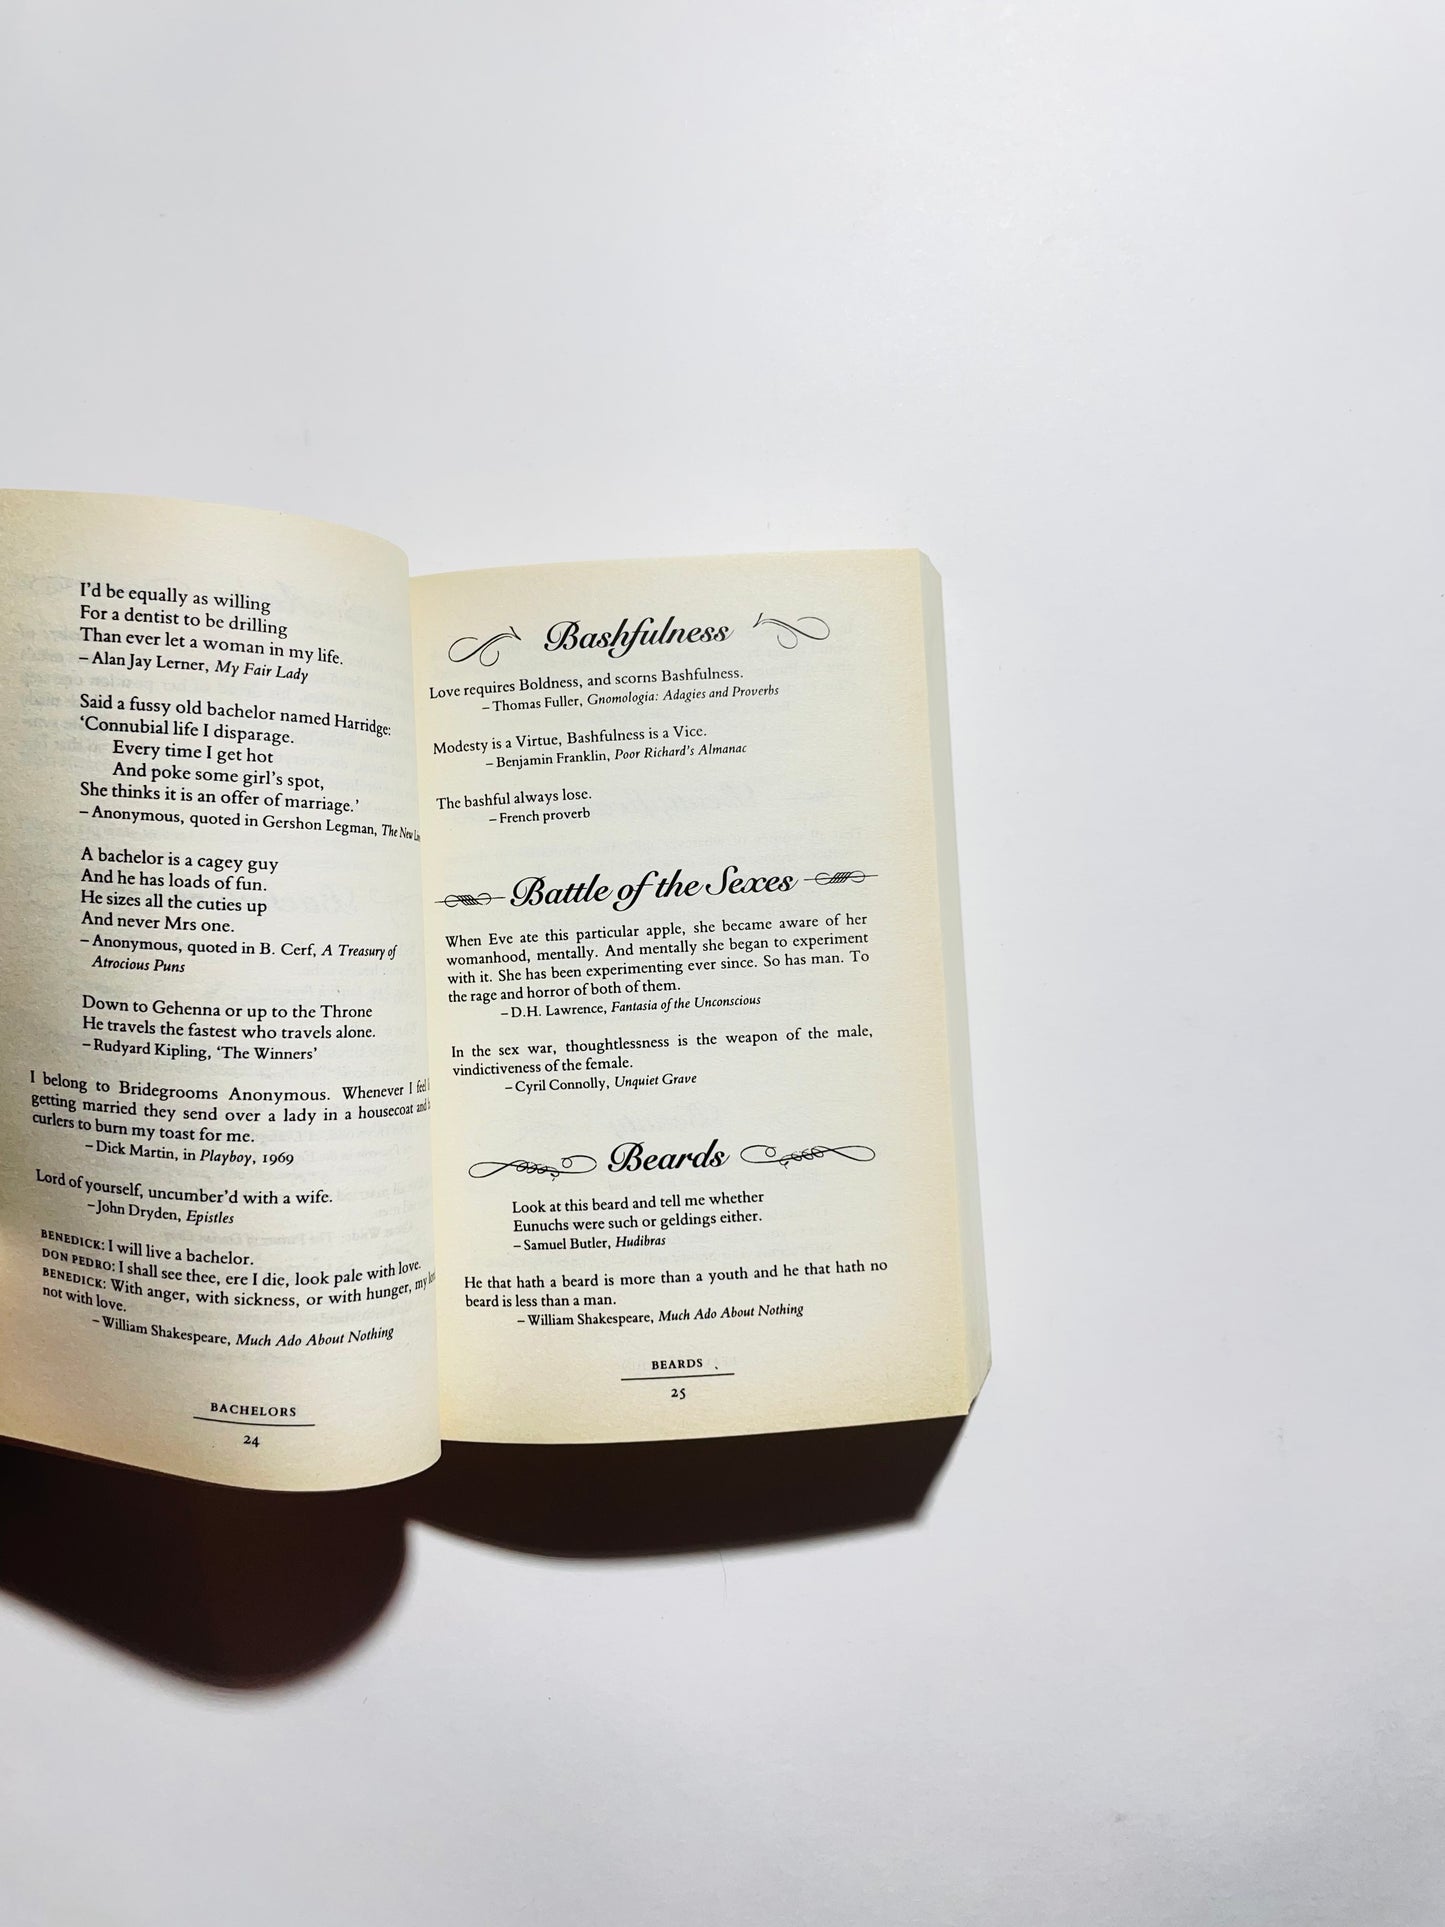 I'd be equally as willing
For a dentist to be drilling
Than ever let a woman in my life.
– Alan Jay Lerner, My Fair Lady
Said a fussy old bachelor named Harridge:
'Connubial life I disparage.
Every time I get hot
And poke some girl's spot,
She thinks it is an offer of marriage.'
– Anonymous, quoted in Gershon Legman, The New
A bachelor is a cagey guy
And he has loads of fun.
He sizes all the cuties up
And never Mrs one.
– Anonymous, quoted in B. Cerf, A Treasury of
Atrocious Puns
Down to Gehenna or up to the Throne
He travels the fastest who travels alone.
– Rudyard Kipling, 'The Winners'
I belong to Bridegrooms Anonymous. Whenever I feel
getting married they send over a lady in a housecoat and
curlers to burn my toast for me.
– Dick Martin, in Playboy, 1969
Lord of yourself, uncumber'd with a wife.
– John Dryden, Epistles
BENEDICK: I will live a bachelor.
DON PEDRO: I shall see thee, ere I die, look pale with love.
BENEDICK: With anger, with sickness, or with hunger, my
not with love.
– William Shakespeare, Much Ado About Nothing
BACHELORS
24
Bashfulness
Love requires Boldness, and scorns Bashfulness.
– Thomas Fuller, Gnomologia: Adagies and Proverbs
Modesty is a Virtue, Bashfulness is a Vice.
– Benjamin Franklin, Poor Richard's Almanac
The bashful always lose.
– French proverb
Battle of the Sexes
When Eve ate this particular apple, she became aware of her
womanhood, mentally. And mentally she began to experiment
with it. She has been experimenting ever since. So has man. To
the rage and horror of both of them.
– D.H. Lawrence, Fantasia of the Unconscious
In the sex war, thoughtlessness is the weapon of the male,
vindictiveness of the female.
– Cyril Connolly, Unquiet Grave
Beards
Look at this beard and tell me whether
Eunuchs were such or geldings either.
– Samuel Butler, Hudibras
He that hath a beard is more than a youth and he that hath no
beard is less than a man.
– William Shakespeare, Much Ado About Nothing
BEARDS
25